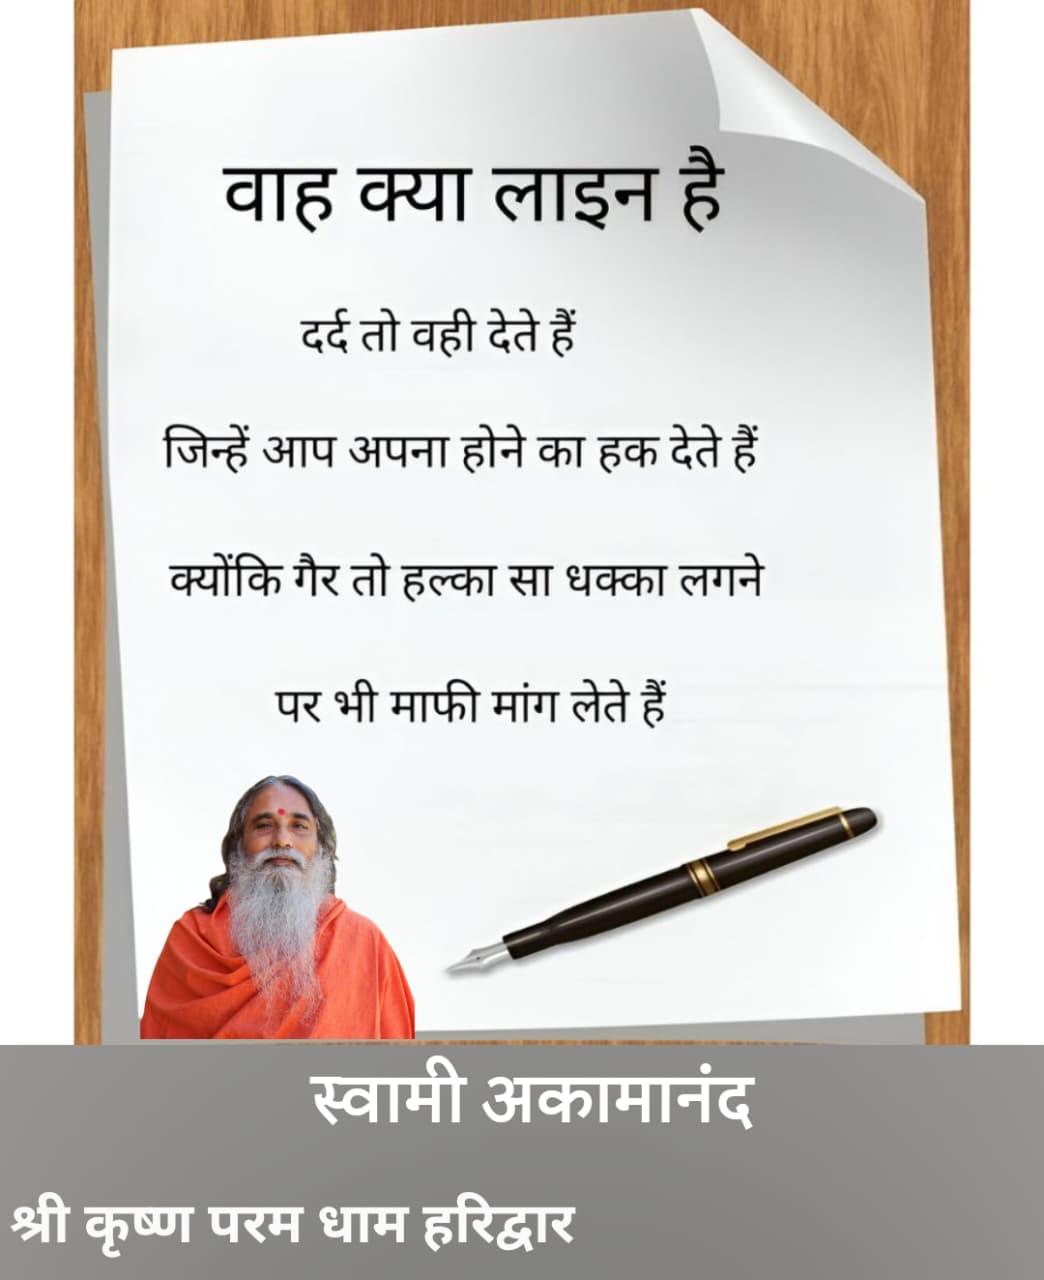 वाह क्या लाइन है
दर्द तो वही देते हैं
जिन्हें आप अपना होने का हक देते हैं
क्योंकि गैर तो हल्का सा धक्का लगने
पर भी माफी मांग लेते हैं
स्वामी अकामानंद
श्री कृष्ण परम धाम हरिद्वार